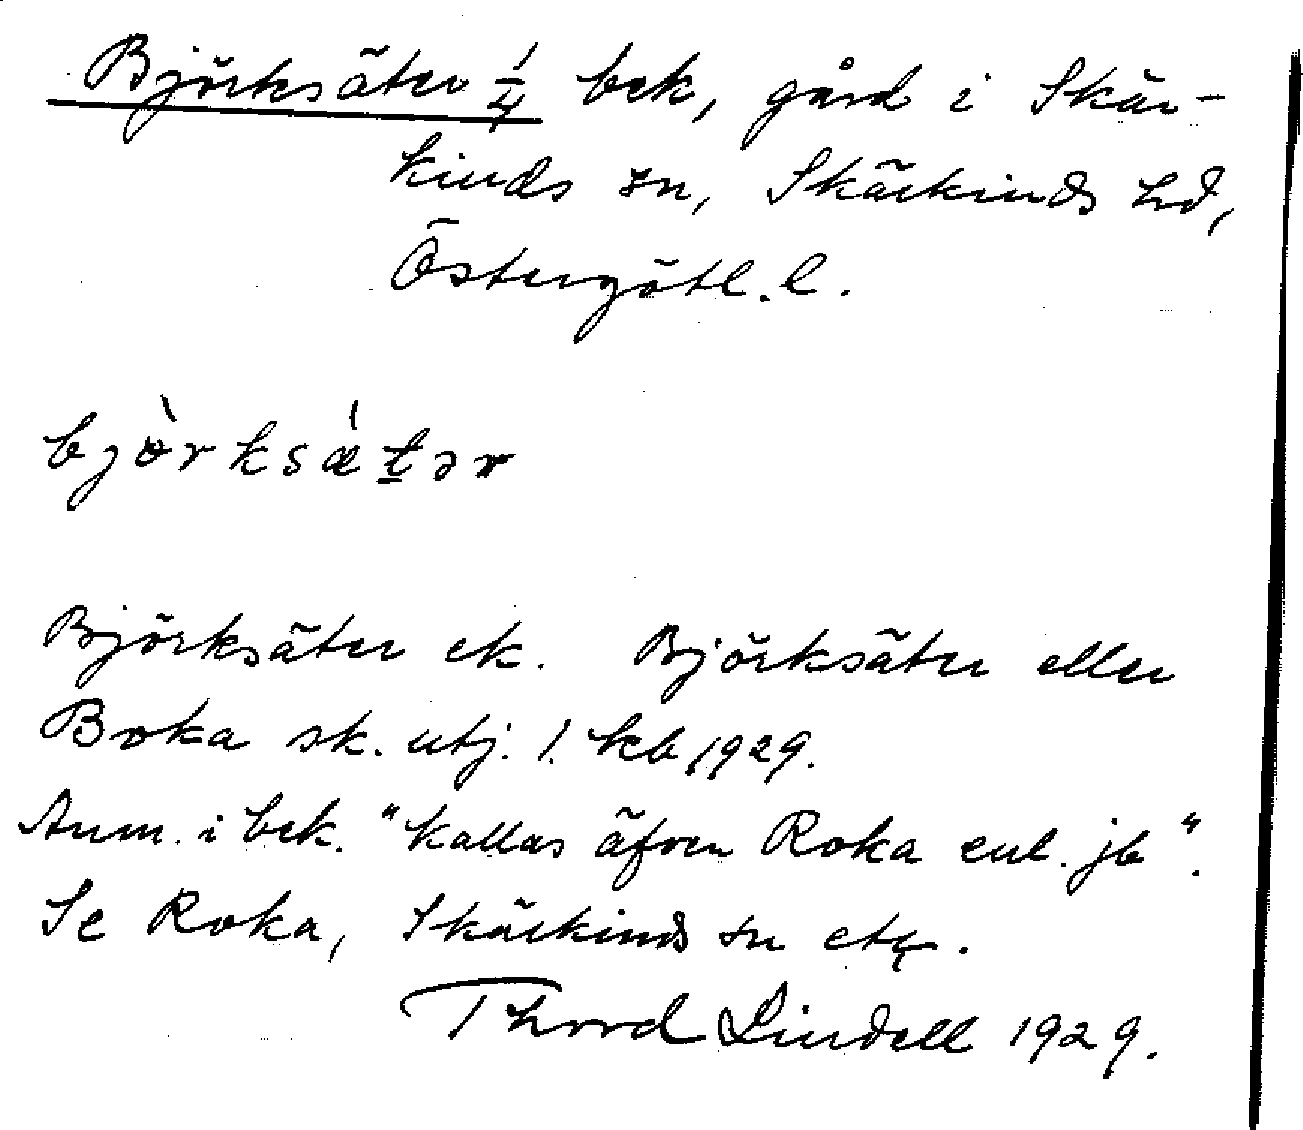 Björksäter 1/4 bek, gård i Skär-
kinds sn, Skärkinds hd,
Östergötl. l.
bjö̀rksǽtər
Björksäter ek. Björksäter eller
Boka sk. utj. 1. kb 1929.
Anm. i bek. "kallas äfven Roka enl. jb".
Se Roka, Skärkinds sn etc.
Thord Lindell 1929.